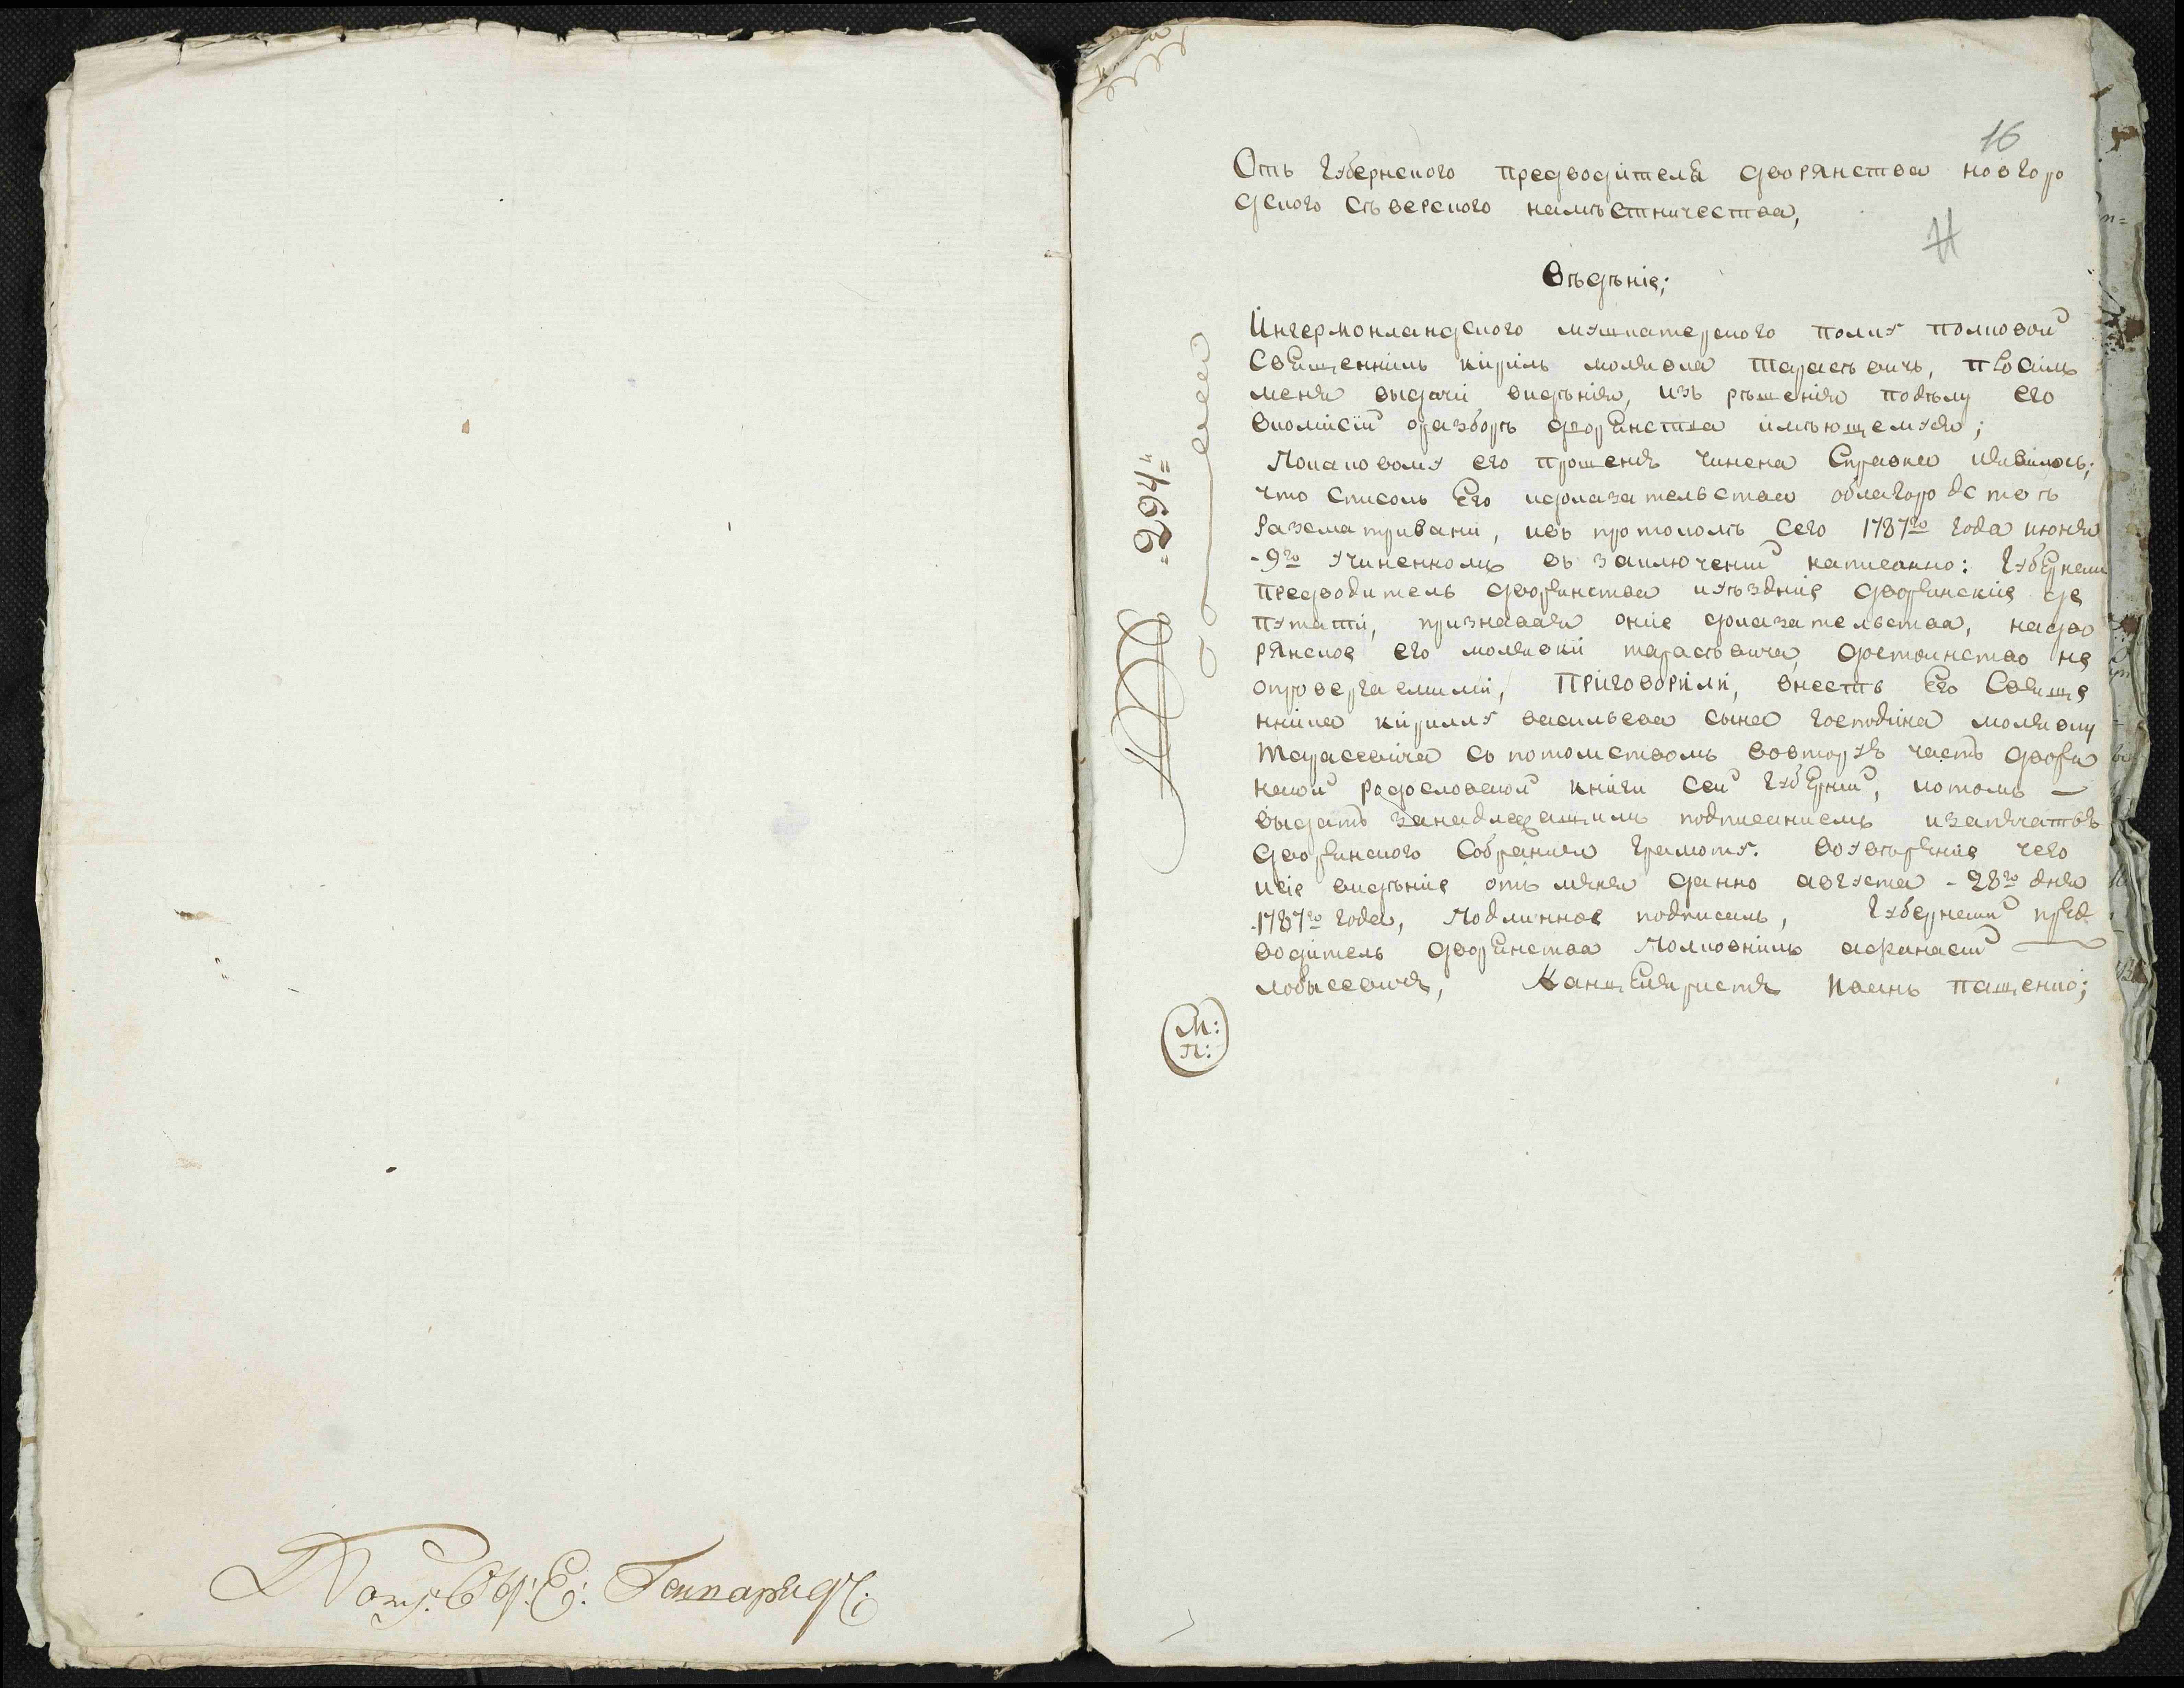 16
Отъ Губернского предводителя дворянства новгоро
дского Сѣверского намѣстничества,
Вѣдѣніе;
Ингермонландского мушкатерского полку полковой
Священникъ кирилъ молявка Тарасѣвичъ, просилъ
меня выдачи видѣнія, изъ рѣшенія подѣлу его
вкомисіи оразборѣ дворянства имѣющемуся;
Покаковому его прошенію чинена Справка иявилось;
что Списокъ Его идоказательства облагородствѣ
Разсматривани, ивъ протоколѣ Сего 1787го года июня
-9го учиненномъ въ заключении написанно: Губернски
предводитель дворянства иуѣздние дворянские де
путати, признавая оние доказателства, надво
рянское его молявки тарасѣвича, достоинство не
опровергаемими, Приговорили, внесть Его Свяще
нника кирилу васильева сына господина молявку
Тарасевича со потомствомъ вовторую часть дворя
нской родословной книги Сей Губернии, потомъ
выдать занадлежащимъ подписаниемъ изапечатью
дворянского Собрания грамоту. Воувѣрение чего
исие видѣние отъ меня данно августа -28го дня
1787го года, Подлинное подписалъ, Губернский пред
водитель дворянства Полковникъ афанасий
лобисевичъ, Канцеляристъ Иванъ пащенко;
М:
П:
=294=